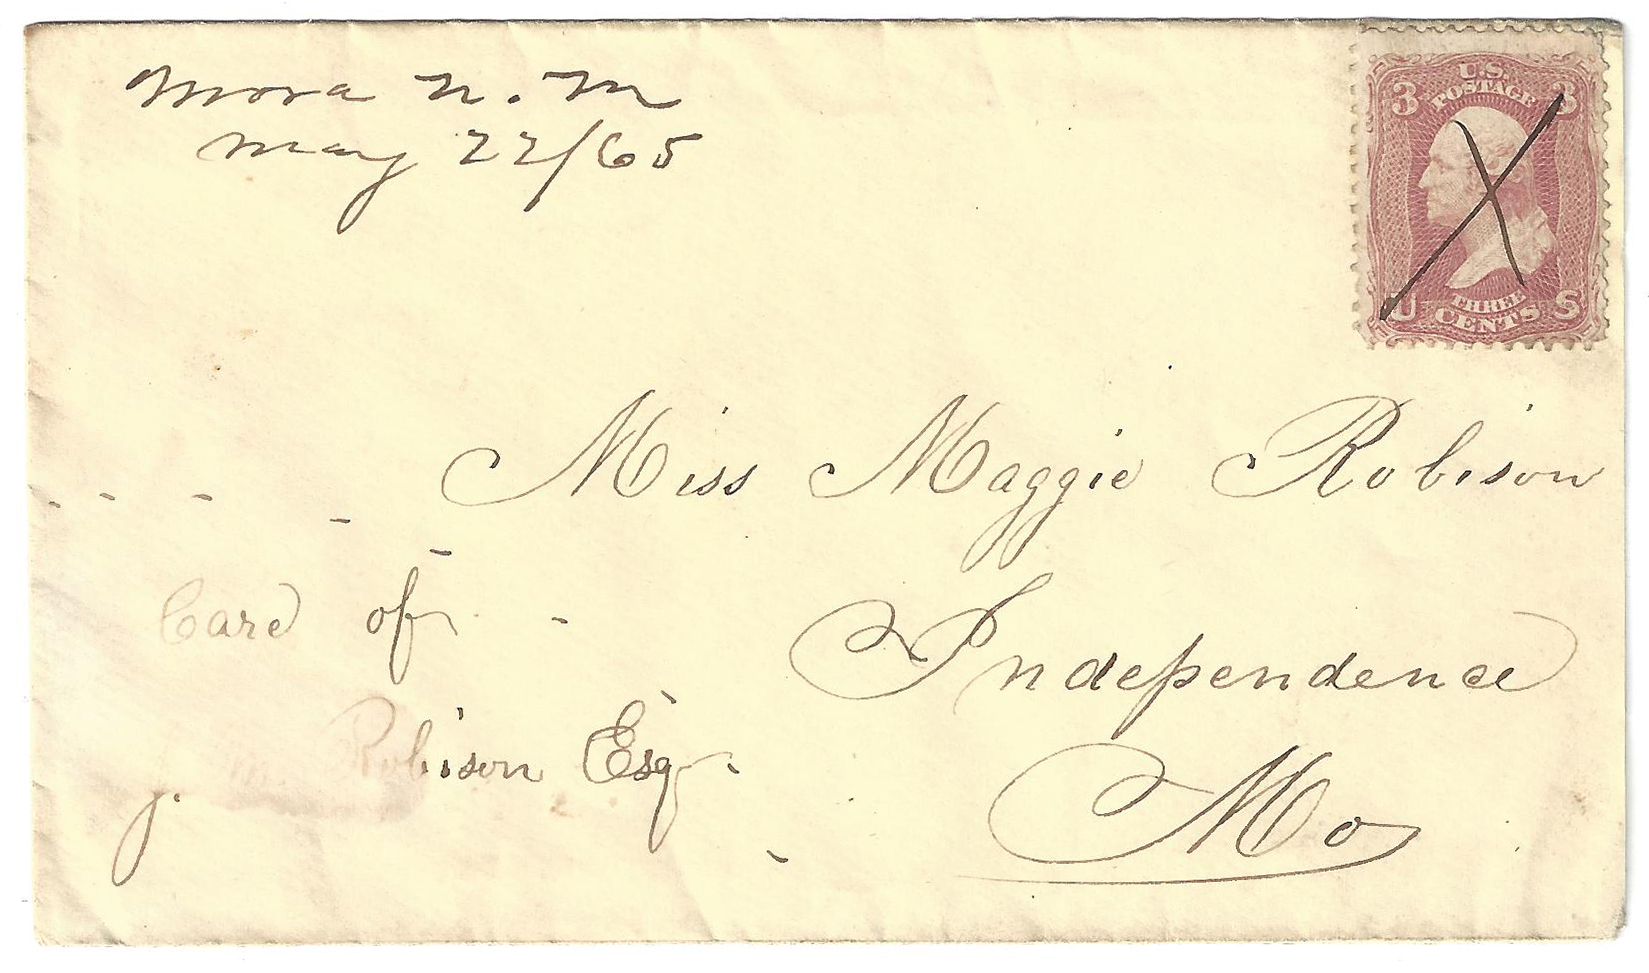 Mora N. M
May 22/65
U.S.
POSTAGE
3 3
THREE
CENTS
U S
Miss Maggie Robison
Care of
Independence
J. M. Robison Esq.
Mo